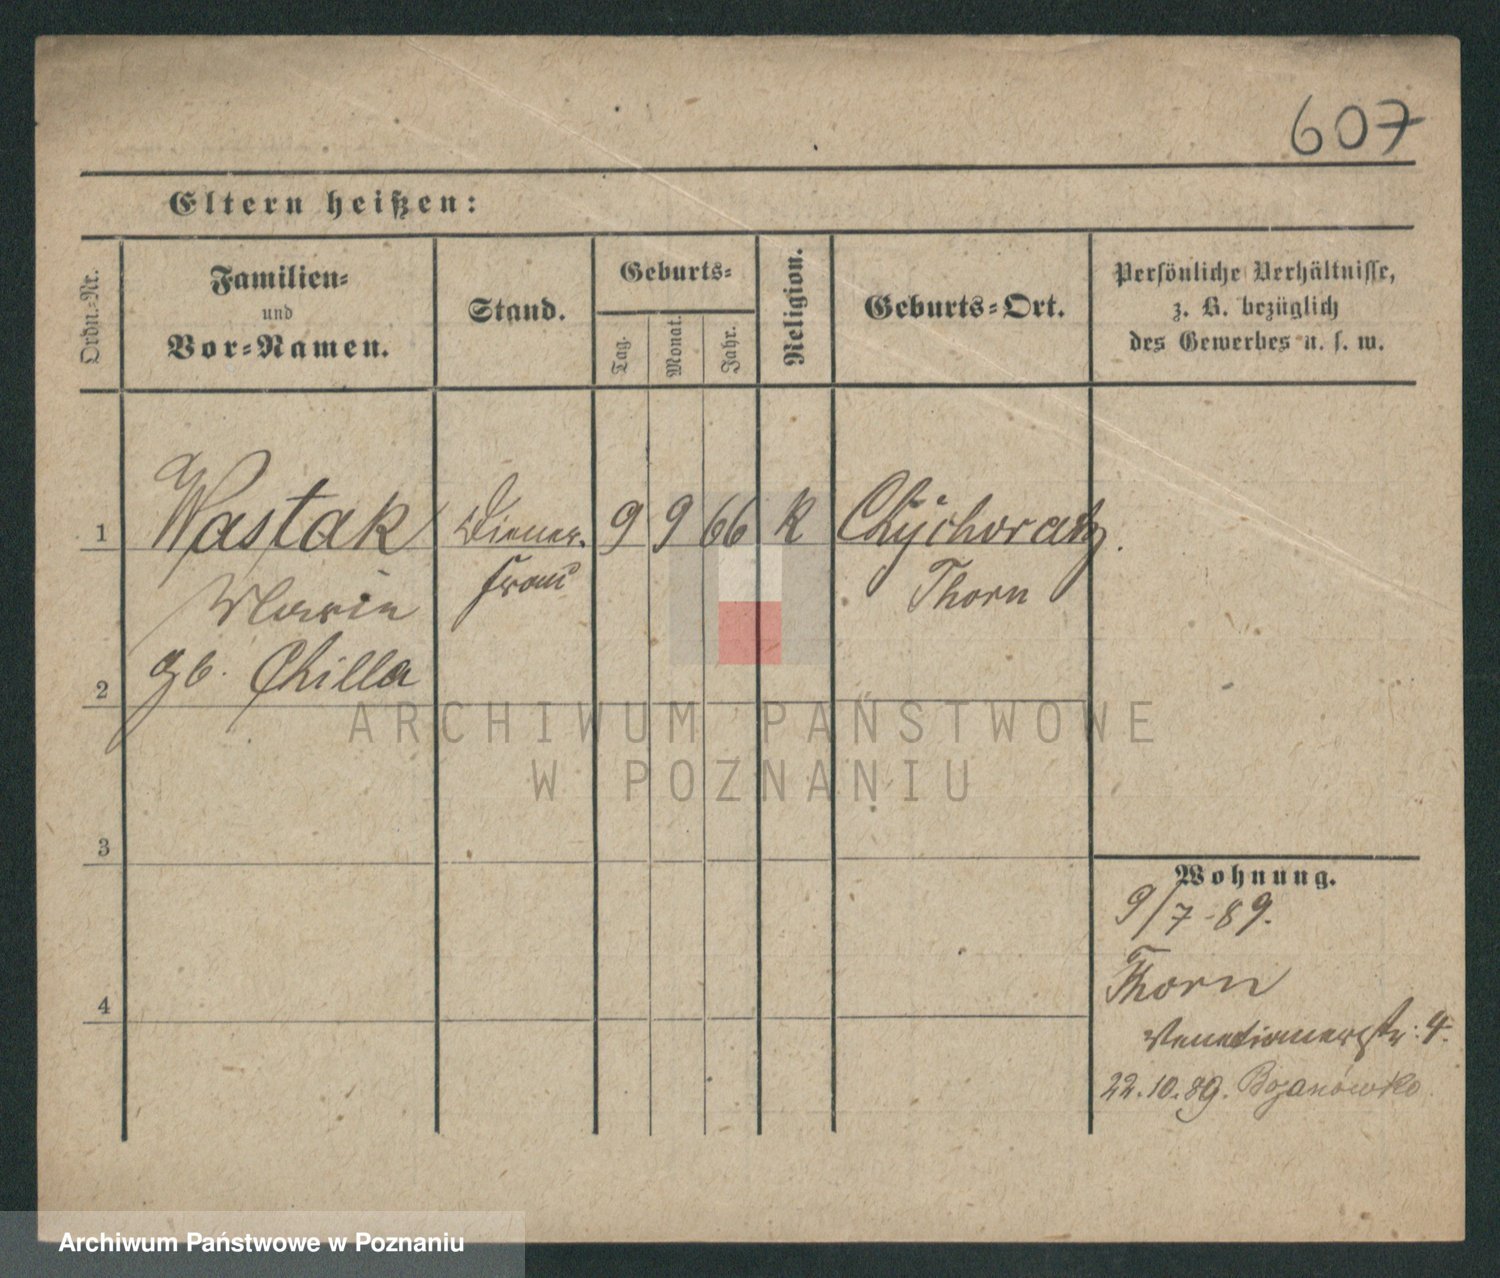 607
Eltern heißen:
Ordn.-Nr.
Familien-
und
Vor-Namen.
Stand.
Geburts-
Tag.
Monat.
Jahr.
Religion.
Geburts-Ort.
Persönliche Verhältnisse,
z. B. bezüglich
des Gewerbes u. s. w.
1 Wastak Diener- 9 9 66 K
frau Thorn
Marie
gb. Chilla
2
ARCHIWUM PAŃSTWOWE
W POZNANIU
3
Wohnung.
9/7-89.
Thorn
4
22.10.89.
Archiwum Państwowe w Poznaniu